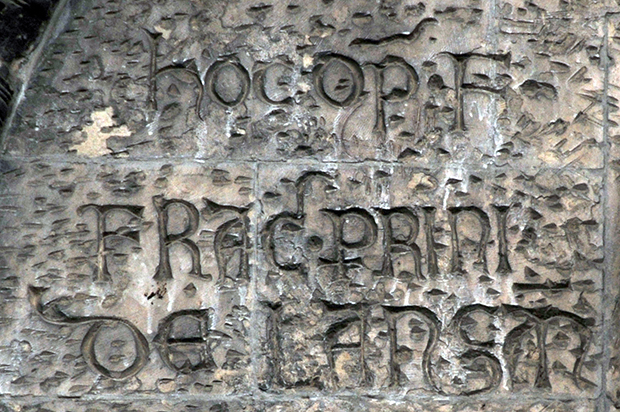 hoc op F
FRAC·PRINI
De LANSM